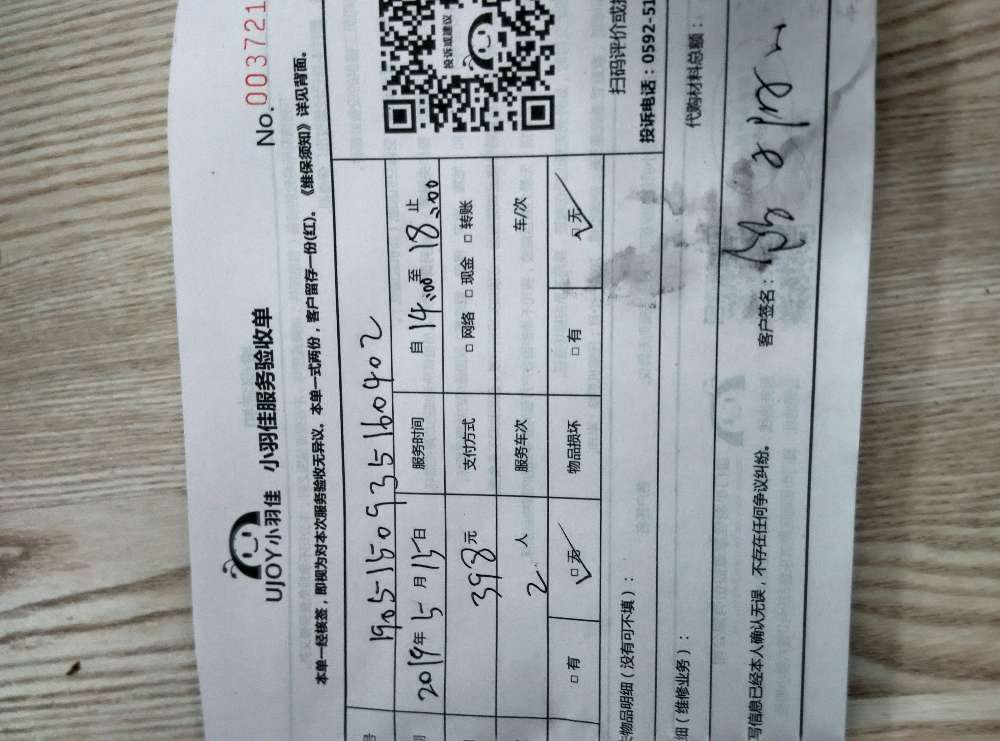 UJOY小羽佳 小羽佳服务验收单
No.003721
本单一经核签，即视为对本次服务验收无异议。本单一式两份，客户留存一份(红)。《维保须知》详见背面。
号 1905-150935160402
2019年5月15日 服务时间 自 14:00 至 18:00 止
398元 支付方式 □ 网络 □ 现金 □ 转账
2 人 服务车次 车/次
□ 有 □ 无 物品损坏 □ 有 □ 无
投诉或建议
扫码评价或
投诉电话：0592-51
物品明细（没有可不填）：
细（维修业务）： 代购材料总额：
写信息已经本人确认无误，不存在任何争议纠纷。 客户签名：